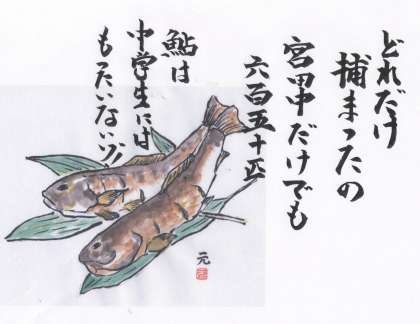 どれだけ
捕まったの
宮田中だけでも
六百五十匹
鮎は
中学生には
もったいないゾ!
元